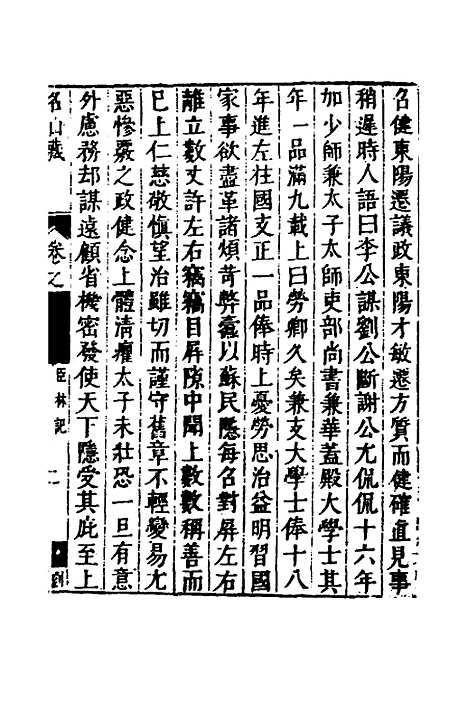 召健東陽遷議政東陽才敏遷方質而健確直見事
稍遲時人語曰李公謀劉公斷謝公尤侃侃十六年
加少師兼太子太師吏部尚書兼華蓋殿大學士其
年一品滿九載上曰勞卿久矣兼支大學士俸十八
年進左柱國支正一品俸時上憂勞思治益明習國
家事欲盡革諸煩苛弊蠹以蘇民隱每召對屏左右
離立數丈許左右竊竊目屏隙中聞上數數稱善而
已上仁慈敬慎望治雖切而謹守舊章不輕變易尤
惡慘覈之政健念上體清癯太子未壯恐一旦有意
外慮務却謀遠顧省機密發使天下隱受其庇至上
名山藏
卷之
臣林記
二
劉